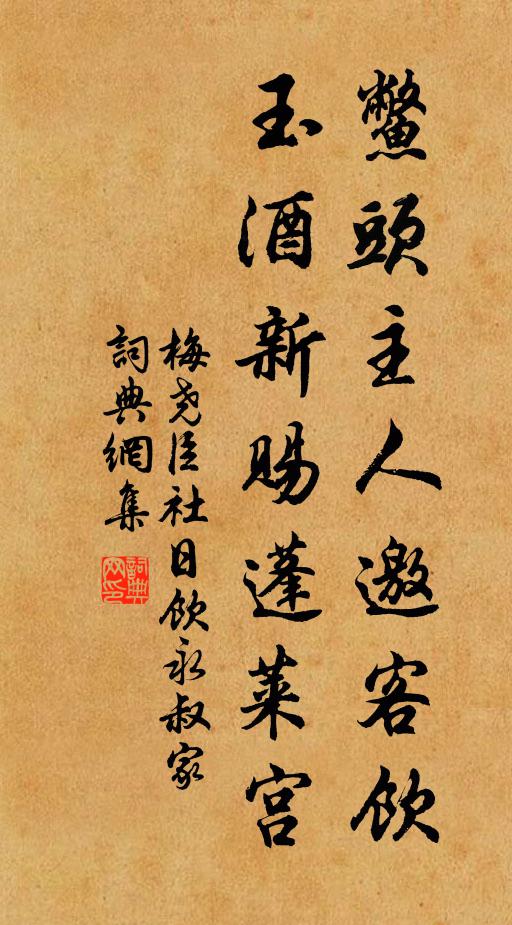 鱉頭主人邀客飲
玉酒新賜蓬萊宮
梅堯臣社日飲永叔家
詞典網集
詞典
网印